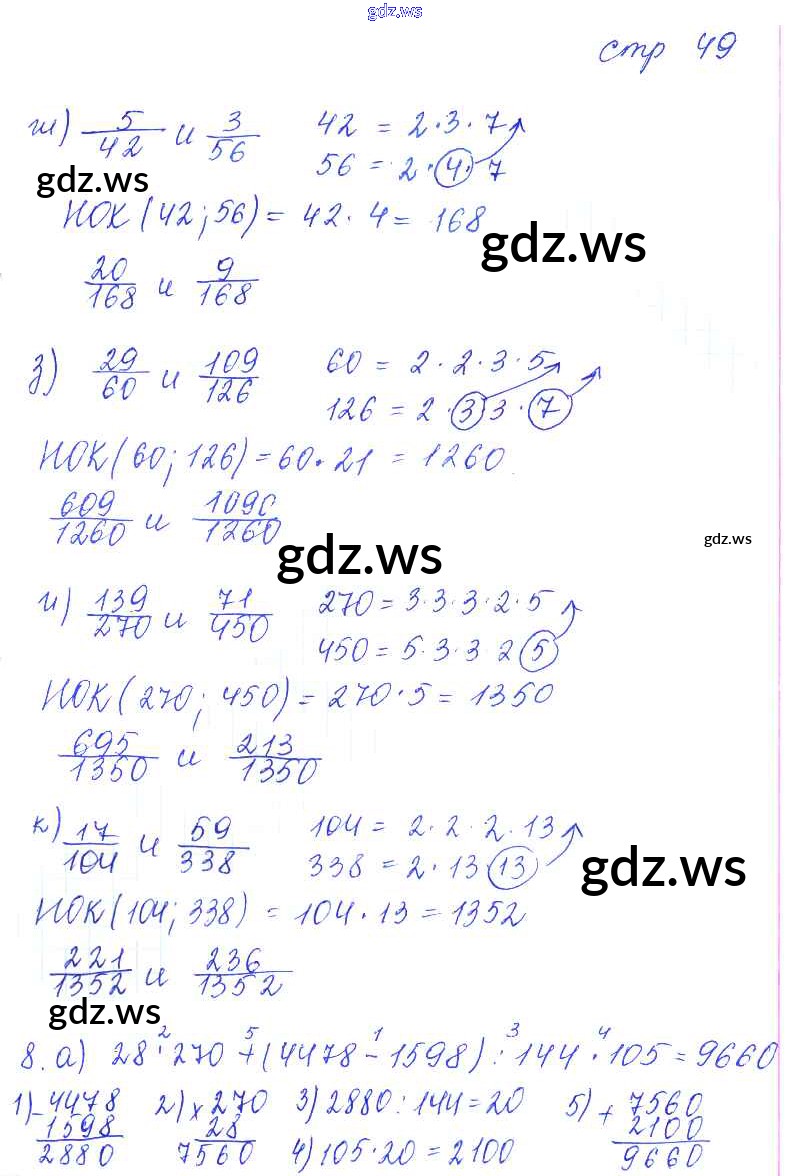 gdz.ws
стр 49
ж) 5/42 и 3/56 42 = 2·3·7
56 = 2·4·7
gdz.ws
НОК (42; 56) = 42·4 = 168
gdz.ws
20/168 и 9/168
з) 29/60 и 109/126 60 = 2·2·3·5
126 = 2·3 3·7
НОК (60; 126) = 60·21 = 1260
609/1260 и 1090/1260
gdz.ws
gdz.ws
и) 139/270 и 71/450 270 = 3·3·3·2·5
450 = 5·3·3·2 5
НОК (270; 450) = 270·5 = 1350
695/1350 и 213/1350
к) 17/104 и 59/338 104 = 2·2·2·13
338 = 2·13·13
gdz.ws
НОК (104; 338) = 104·13 = 1352
221/1352 и 236/1352
gdz.ws
2 5 1 3 4
8. а) 28·270 + (4478 - 1598) : 144·105 = 9660
1) - 4478 2) × 270 3) 2880 : 144 = 20 5) + 7560
1598 28 2100
2880 7560 4) 105·20 = 2100 9660